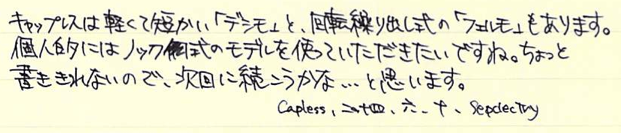 キャップレスは軽くて短かい「デシモ」と、回転繰り出し式の「フェルモ」もあります。
個人的にはノック式のモデルを使っていただきたいですね。ちょっと
書ききれないので、次回に続こうかな…と思います。
Capless、二十四、六、十、